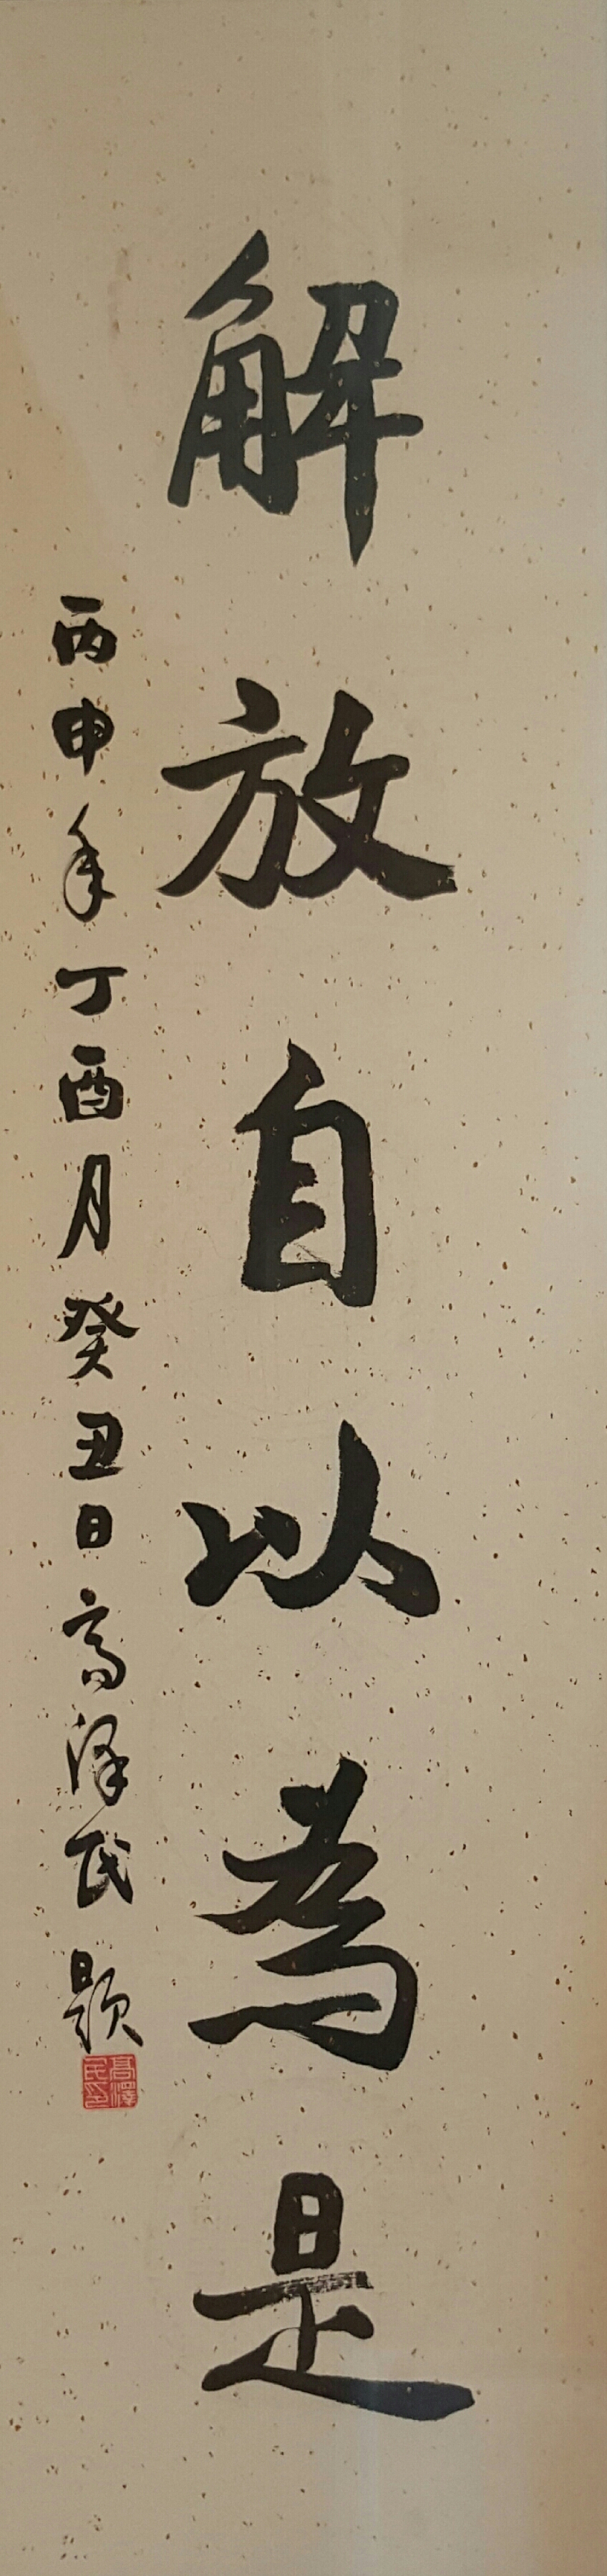 解放自以為是
丙申年丁酉月癸丑日高泽民题
高澤民印